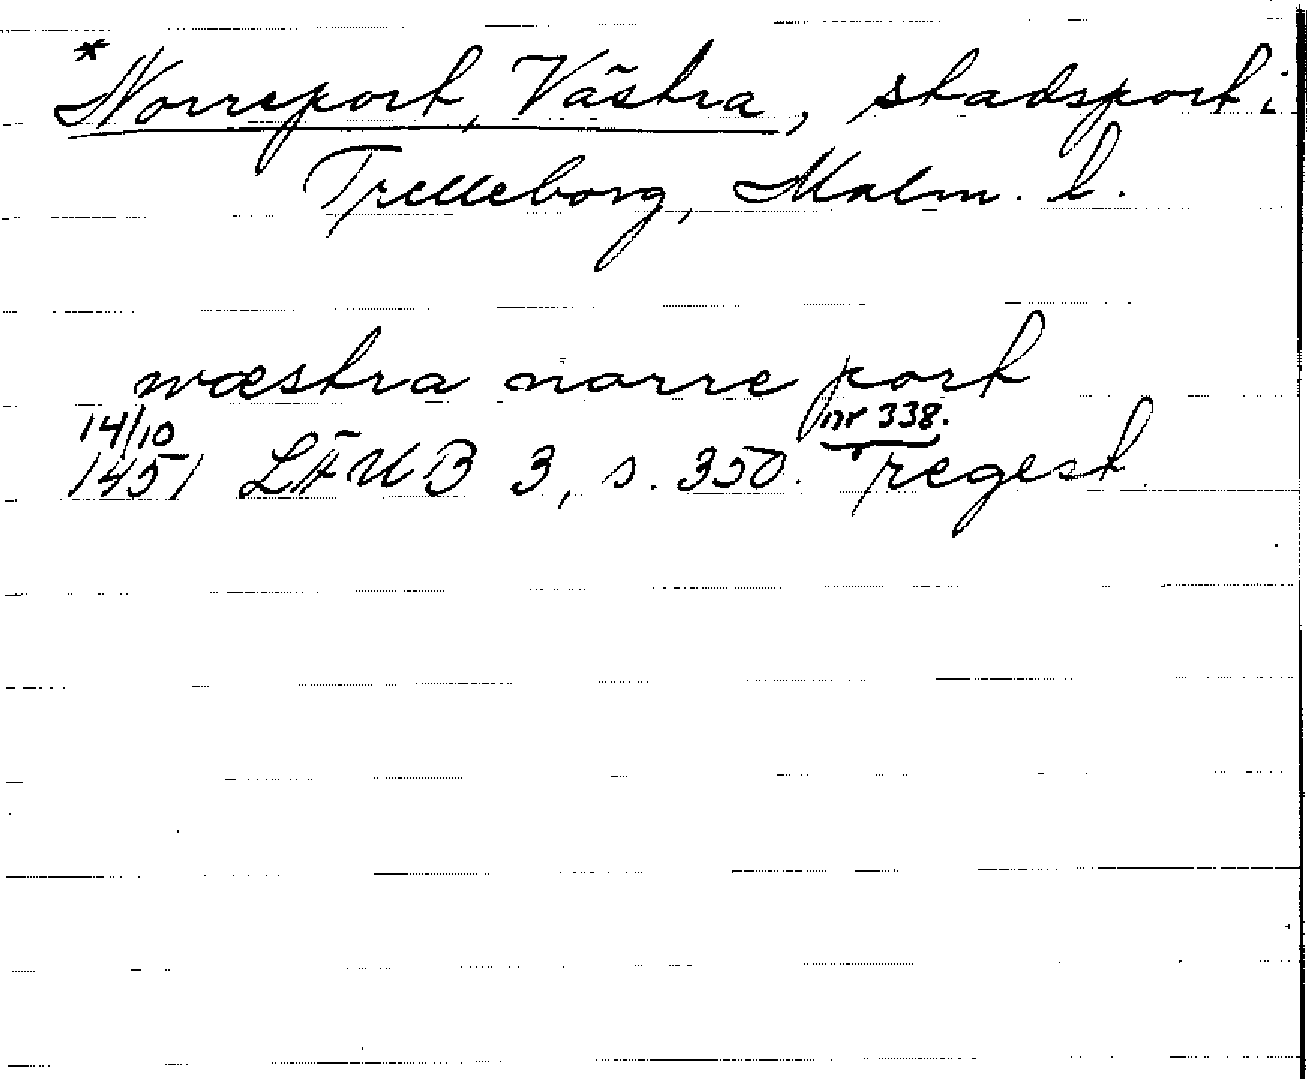 *Norreport, Västra, stadsport i
Trelleborg, Malm. l.
wæstra norre port
14/10 nr 338.
1451 LÄUB 3, s. 350. regest